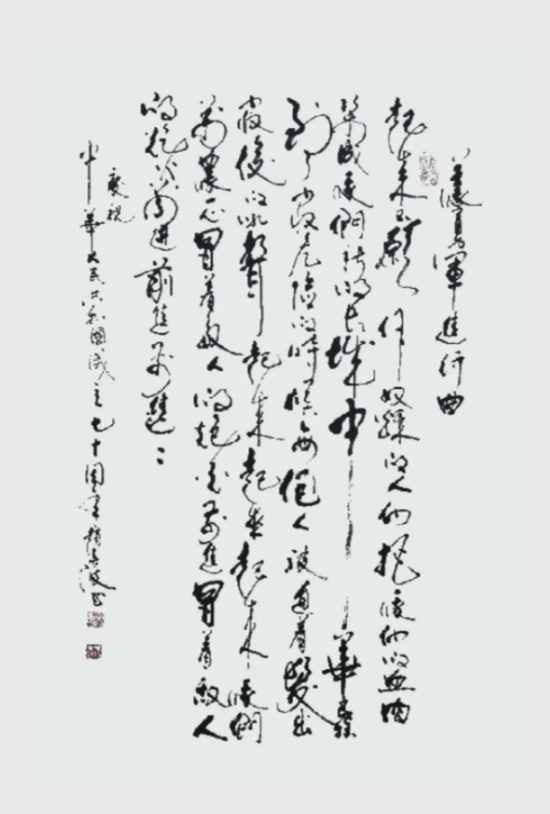 義勇軍進行曲
起來不願作奴隸的人们把我们的血肉
築成我們新的長城中華民族
到了最危險的時候每個人被迫着發出
最後的吼聲起來起來起來我們
萬衆一心冒着敵人的炮火前進冒着敵人
的炮火前進前進前進
慶祝
中華人民共和國成立七十周年